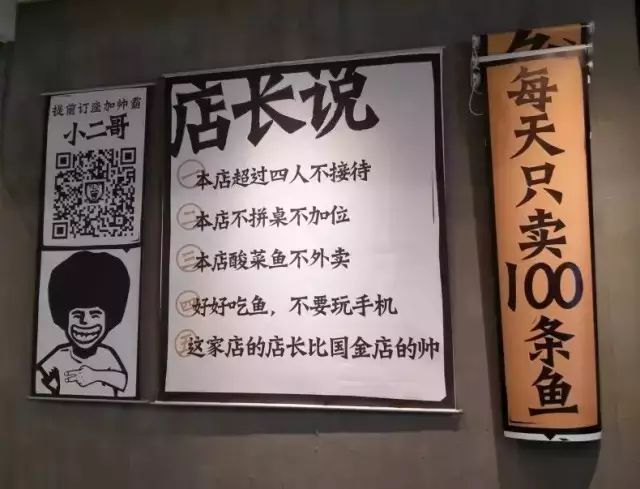 提前订座加帅霸
小二哥
店长说
一 本店超过四人不接待
二 本店不拼桌不加位
三 本店酸菜鱼不外卖
四 好好吃鱼，不要玩手机
五 这家店的店长比国金店的帅
每天只卖100条鱼